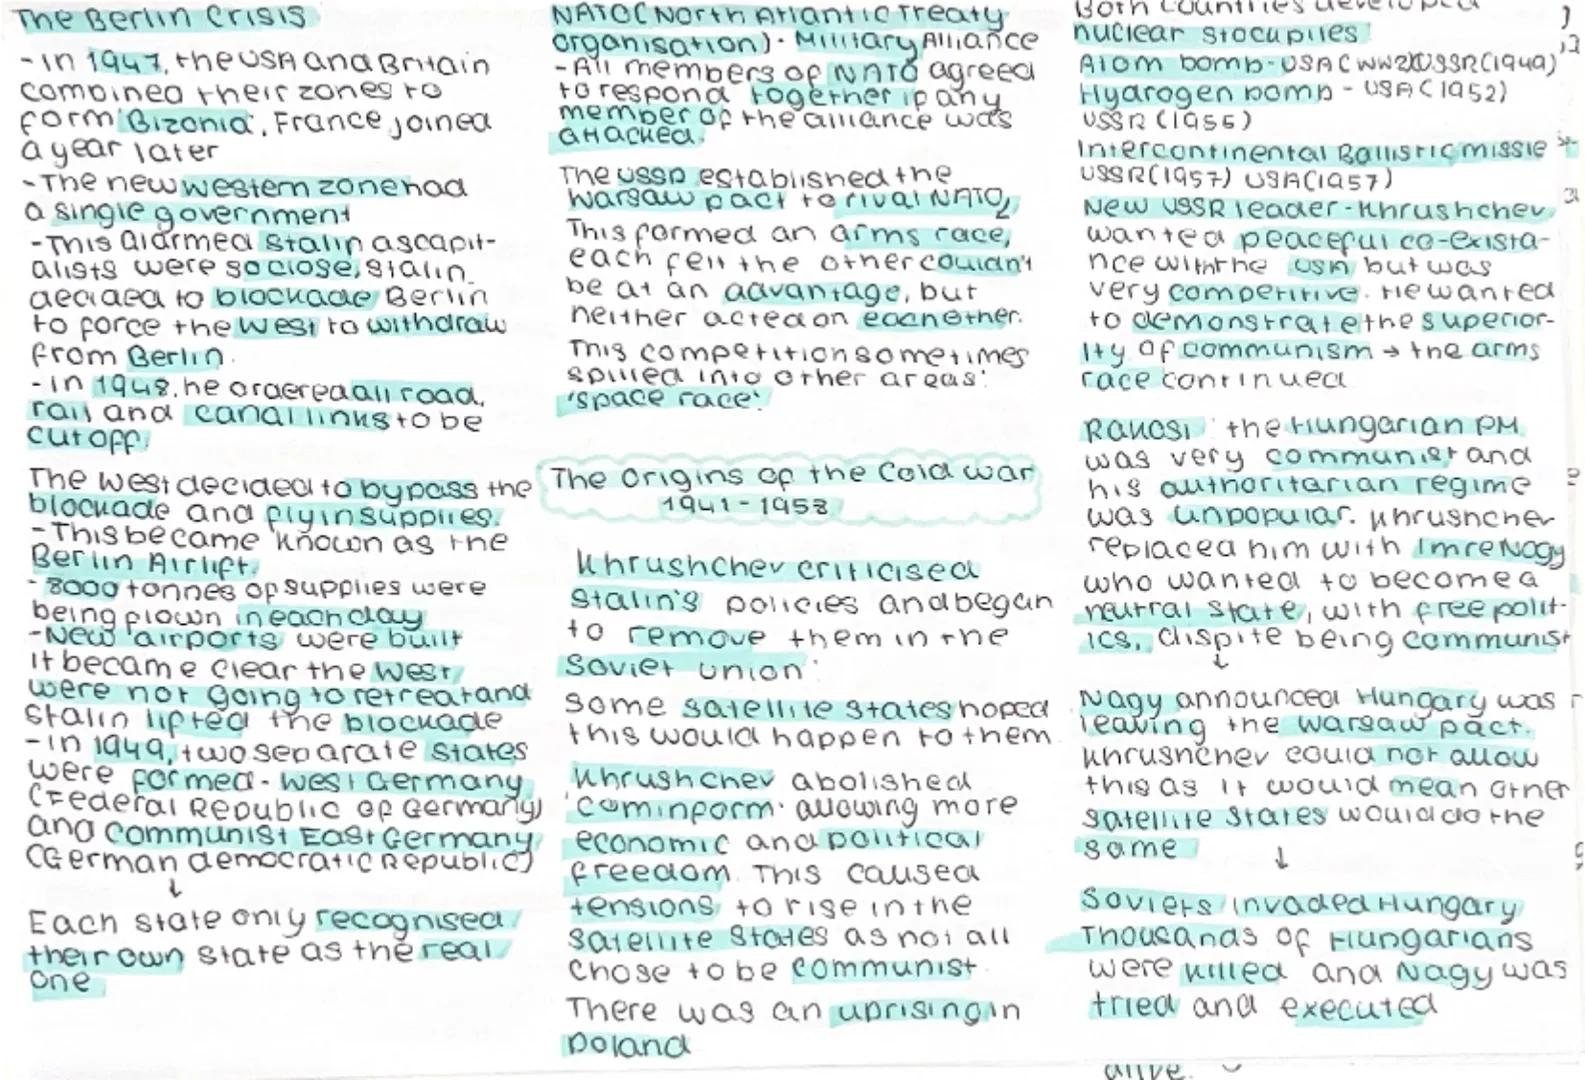 The Berlin Crisis
-In 1947, the USA and Britain
combined their zones to
form Bizonia, France joined
a year later
-The new western zone had
a single government
-This alarmed Stalin as capit-
alists were so close, Stalin
decided to blockade Berlin
to force the west to withdraw
from Berlin.
-in 1948, he ordered all road,
rail and canal links to be
cut off.
The west decided to bypass the
blockade and fly in supplies.
-This became known as the
Berlin Airlift.
-8000 tonnes of supplies were
being flown in each day
-New airports were built
it became clear the west
were not going to retreat and
Stalin lifted the blockade
-in 1949, two separate states
were formed - West Germany
(Federal Republic of Germany)
and communist East Germany
(German democratic Republic)
↓
Each state only recognised
their own state as the real
one
NATO (North Atlantic Treaty
organisation) - Military Alliance
-All members of NATO agreed
to respond together if any
member of the alliance was
attacked.
The USSR established the
Warsaw pact to rival NATO,
This formed an arms race,
each felt the other couldn't
be at an advantage, but
neither acted on eachother.
This competition sometimes
spilled into other areas:
'space race'
The Origins of the Cold War
1941-1958
Khrushchev criticised
Stalin's policies and began
to remove them in the
Soviet Union.
Some satellite states hoped
this would happen to them
Khrushchev abolished
'cominform' allowing more
economic and political
freedom. This caused
tensions to rise in the
satellite states as not all
chose to be communist.
There was an uprising in
Poland
Both countries developed
nuclear stockpiles
Atom bomb - USA (WW2) USSR (1949)
Hydrogen bomb - USA (1952)
USSR (1955)
Intercontinental Ballistic missle
USSR (1957) USA (1957)
New USSR leader - Khrushchev
wanted peaceful co-exista-
nce with the USA but was
very competitive. He wanted
to demonstrate the superior-
ity of communism → the arms
race continued
Rakosi: the Hungarian PM
was very communist and
his authoritarian regime
was unpopular. Khrushchev
replaced him with Imre Nagy
who wanted to become a
neutral state, with free polit-
ics, dispite being communist
↓
Nagy announced Hungary was
leaving the Warsaw pact.
Khrushchev could not allow
this as it would mean other
satellite states would do the
same
↓
Soviets invaded Hungary
Thousands of Hungarians
were killed and Nagy was
tried and executed
alive.